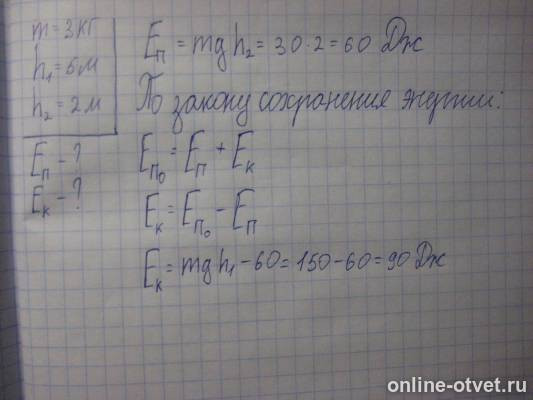 m = 3 кг
h₁ = 5 м
h₂ = 2 м
Eп - ?
Eк - ?
Eп = mgh₂ = 30·2 = 60 Дж
По закону сохранения энергии:
Eп₀ = Eп + Eк
Eк = Eп₀ - Eп
Eк = mgh₁ - 60 = 150 - 60 = 90 Дж
online-otvet.ru